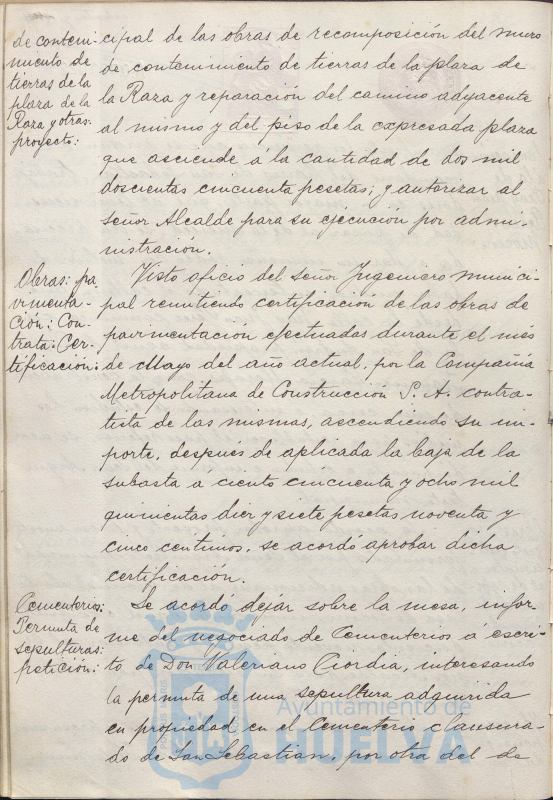 de conteni-
miento de
tierras de la
plaza de la
Raza y otras:
proyecto:
cipal de las obras de recomposición del muro
de contenimiento de tierras de la plaza de
la Raza y reparación del camino adyacente
al mismo y del piso de la expresada plaza
que asciende á la cantidad de dos mil
doscientas cincuenta pesetas; y autorizar al
señor Alcalde para su ejecución por admi-
nistración.
Obras: pa-
vimenta-
ción: Con-
trata: Cer-
tificación:
Visto oficio del señor Ingeniero munici-
pal remitiendo certificación de las obras de
pavimentación efectuadas durante el mes
de Mayo del año actual, por la Compañia
Metropolitana de Construcción S. A. contra-
tista de las mismas, ascendiendo su im-
porte, después de aplicada la baja de la
subasta a ciento cincuenta y ocho mil
quinientas diez y siete pesetas noventa y
cinco centimos, se acordó aprobar dicha
certificación.
Cementerios:
Permuta de
sepulturas:
petición:
Se acordó dejar sobre la mesa, infor-
me del negociado de Cementerios a escri-
to de Don Valeriano Ciordia, interesando
la permuta de una sepultura adquirida
en propiedad en el Cementerio clausura-
do de San Sebastian, por otra del de
Ayuntamiento de
HUELVA